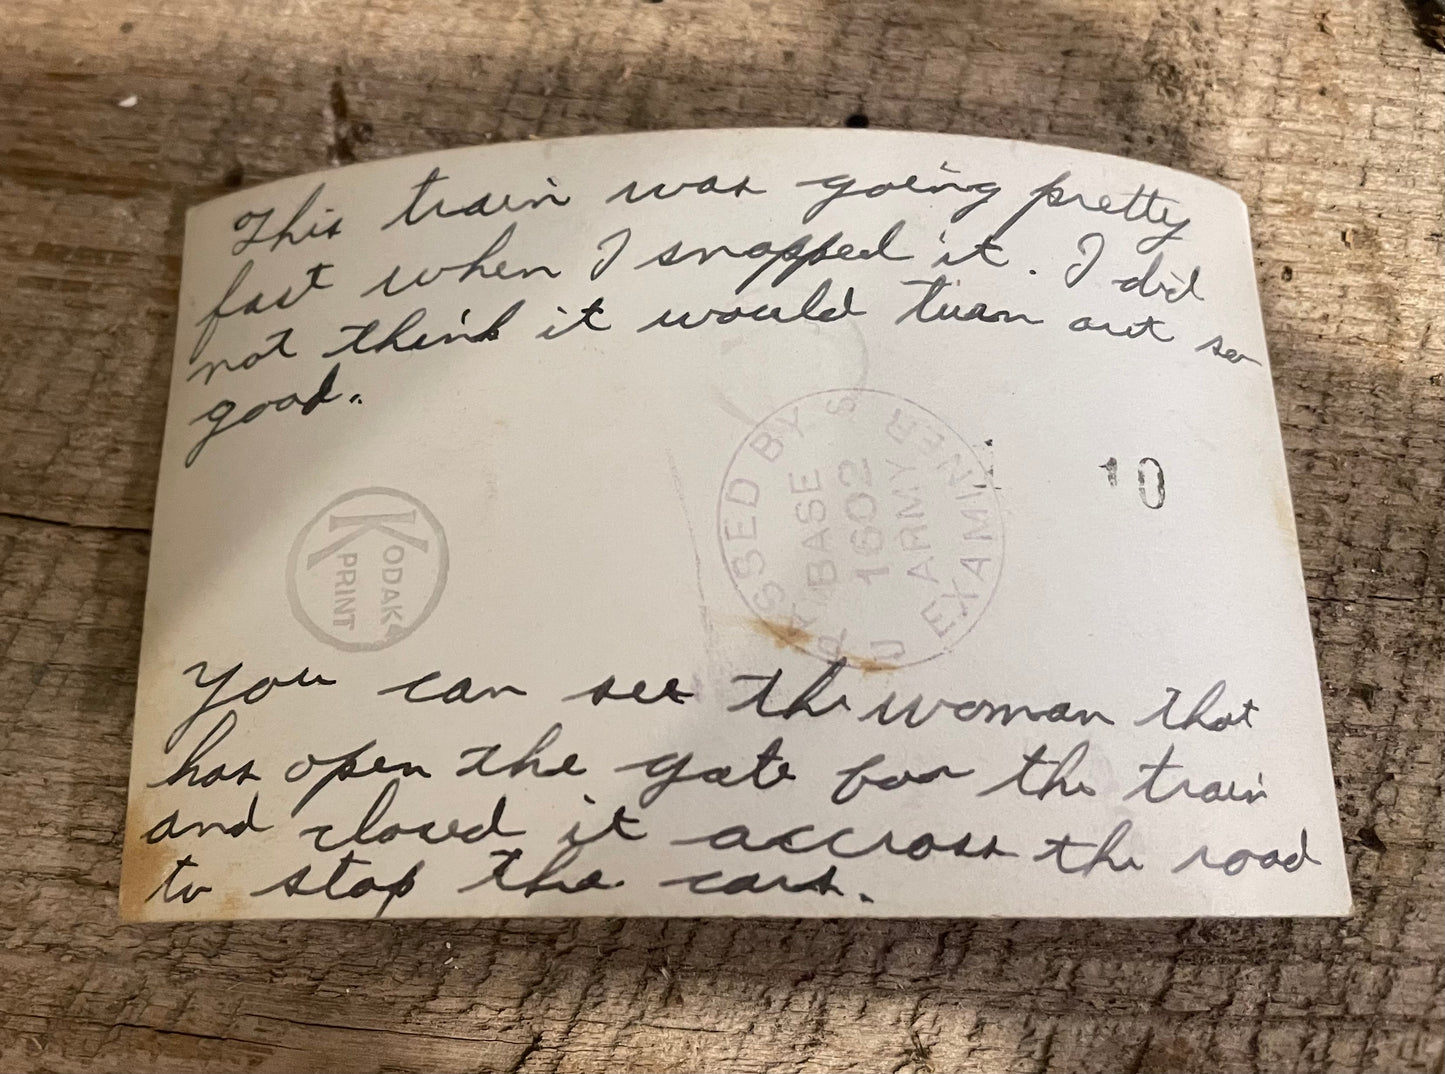 This train was going pretty
fast when I snapped it. I did
not think it would turn out so
good.
SSED BY
BASE
1602
ARMY
EXAMINER
10
KODAK
PRINT
You can see the woman that
has open the gate for the train
and closed it accross the road
to stop the cars.